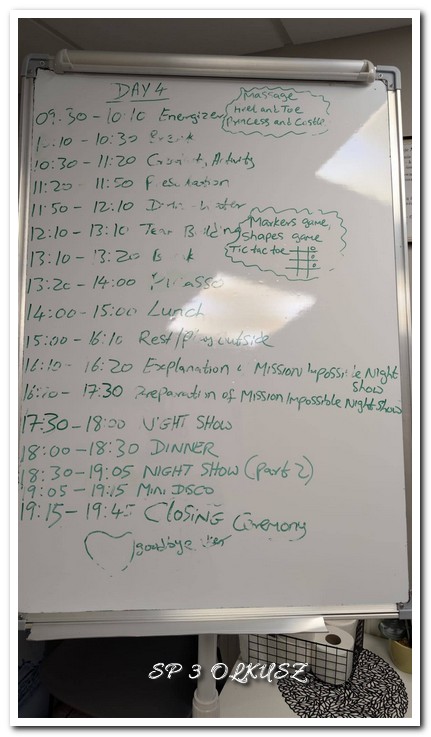 DAY 4
09:30 - 10:10 Energizer
Massage
Heel and Toe
Princess and Castle
10:10 - 10:30 Break
10:30 - 11:20 Activity
11:20 - 11:50 Presentation
11:50 - 12:10
12:10 - 13:10 Team Building
Markers game,
shapes game
Tic tac toe
13:10 - 13:20 Break
13:20 - 14:00 Picasso
14:00 - 15:00 Lunch
15:00 - 16:10 Rest/Play outside
16:10 - 16:20 Explanation Mission Impossible Night
show
17:30 Preparation of Mission Impossible Night Show
17:30 - 18:00 NIGHT SHOW
18:00 - 18:30 DINNER
18:30 - 19:05 NIGHT SHOW (part 2)
19:05 - 19:15 MINI DISCO
19:15 - 19:45 CLOSING Ceremony
goodbye
SP 3 OLKUSZ